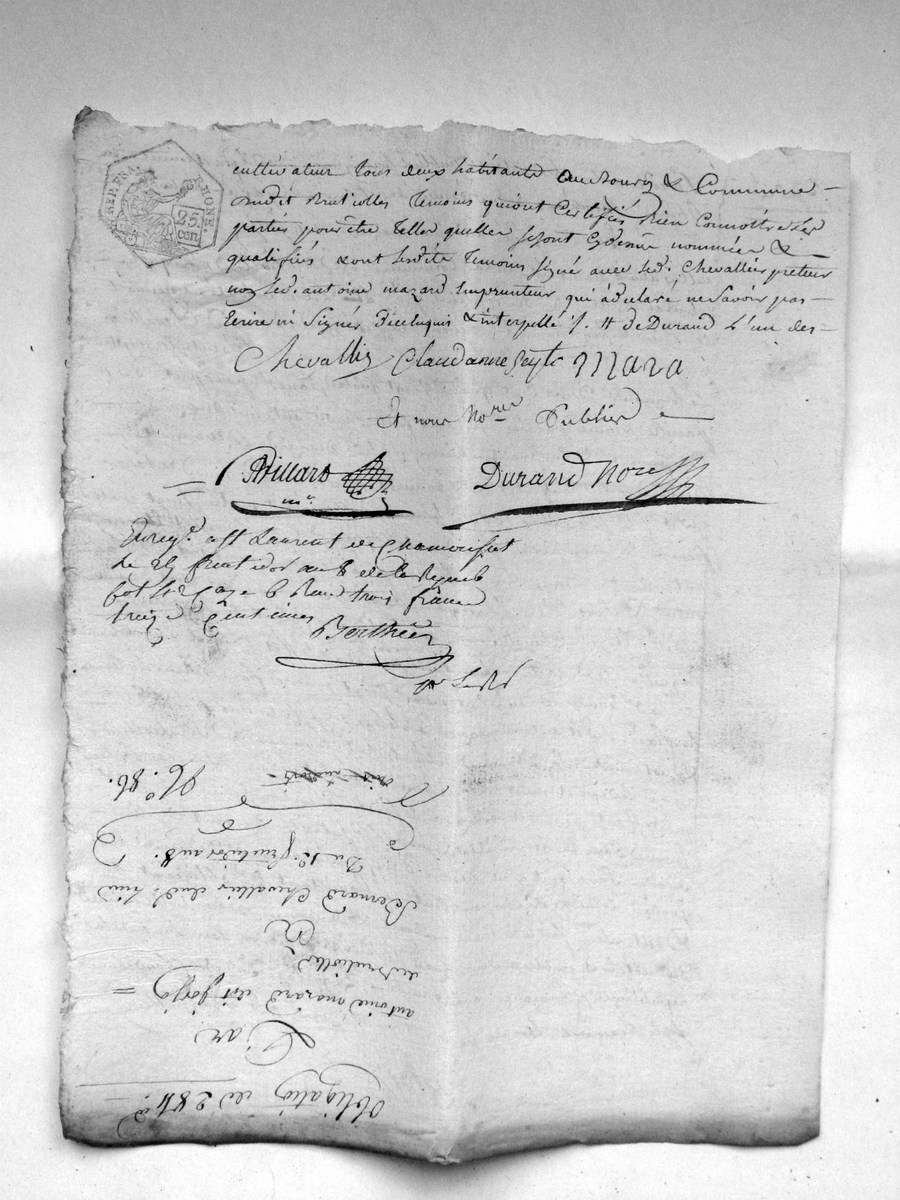 REP. FRA.
RHONE.
25.
CEN.
cultivateur tous deux habitants au bourg & Commune —
dudit Brutiolles Temoins qui ont Certifiés bien Connoitre les
parties pour être Telles quelles se sont Cydessus nommées &
qualifiés & ont lesdits temoins signé avec led. Chevallier preteur
non led. antoine mazard Emprunteur qui à declaré ne savoir pas —
Ecrire ni Signer de ce enquis & interpellé /. # de Durand L'un des —
Chevallier Claud anne mara
Et nous No.re Publics
Billard Durand Nore
Enreg. a St Laurent de Chamousset
le fructidor an 8 de la Repub
fot Case 6 Reçu trois francs
treize Centimes
Berthier
N.° 86.
Du 12 fructidor an 8.
Bernard Chevallier dud. lieu
A
de Brutiolles
antoine mazard dit =
Par
Obligation de 284.#